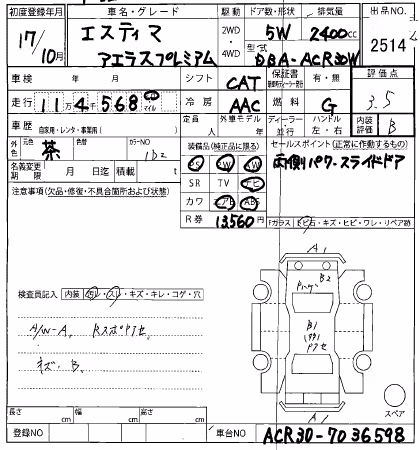 初度登録年月 車名・グレード 駆動 ドア数・形状 排気量 出品NO.
17/10月 エスティマ アエラスプレミアム 2WD 4WD 5W 2400cc 2514
型式 DBA-ACR30W
車検 年 月 シフト CAT 保証書 有・無 評価点
走行 11万4千568 マイル 冷房 AAC 燃料 G 3.5
車歴 自家用・レンタ・事業用( ) 定員 人 外車モデル 年 ディーラー・並行 ハンドル 左・右 内装評価 B
外色 元色 茶 色替 カラーNO 1D2
装備品(純正品に限る) セールスポイント(正常に作動するもの)
PS PW AW 両側パワースライドドア
名義変更期限 月 日迄 積載 t
SR TV ナビ
カワ エアB ABS
注意事項(欠品・修復・不具合箇所および状態)
R券 13,560円
Fガラス ヒビ石・キズ・ヒビ・ワレ・リペア跡
A1
B2
検査員記入 内装 汚レ・スレ・キズ・キレ・コゲ・穴
A/W-A. Rスポアクセ
B1
キズ. B.
長さ cm 幅 cm 高さ cm
A1
スペア
登録NO 車台NO ACR30-7036598